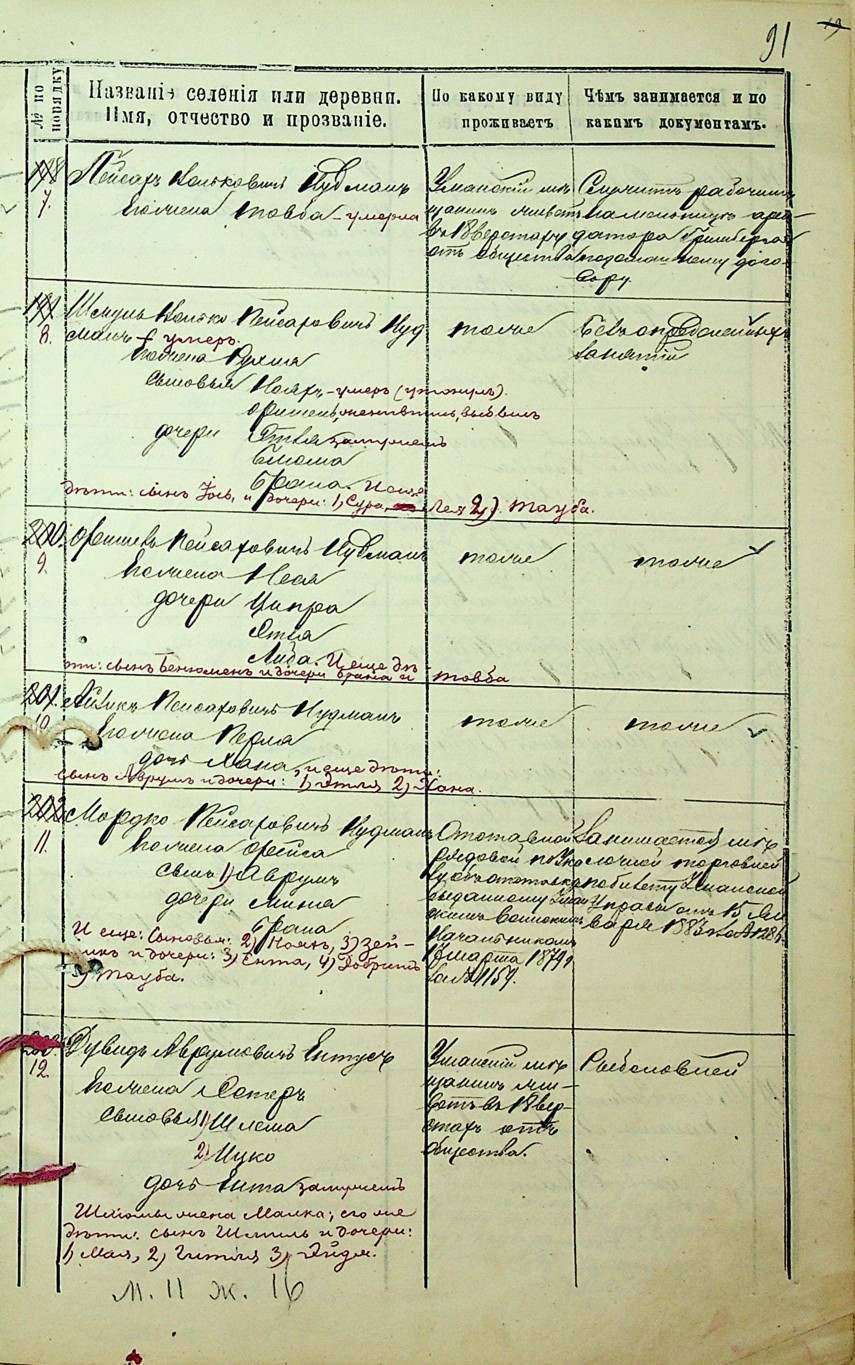 91
19
№ по порядку
Названіе селенія или деревни.
Имя, отчество и прозваніе.
По какому виду
проживаетъ
Чѣмъ занимается и по
какимъ документамъ.
198
7.
Пейсахъ Ицковичъ Нудманъ
жена Товба - умерла
Уманскій мѣ-
щанинъ живетъ
въ 18 верстахъ
отъ общества
Служитъ рабочимъ
на мельницѣ арен-
датора Гринберга
по домашнему дого-
вору.
199
8.
Шмуль Ицко Пейсаховичъ Нуд
манъ - умеръ.
жена Рухля
сыновья
- умеръ (утонулъ).
женившись, выбылъ
дочери Этля замужемъ
Блюма
Брана. И еще
дѣти: сынъ Іось, и дочери: 1) Сура, Лея 2). Тауба.
тоже
Безъ опредѣленныхъ
занятій
200.
9.
Пейсаховичъ Нудманъ
жена Неся
дочери Ципра
Этля
Либа. И еще дѣ-
ти: сынъ Бенюменъ и дочери Брана и Товба
тоже
тоже
201.
10
Айзикъ Пейсаховичъ Нудманъ
жена Перля
дочь Хана, и еще дѣти:
сынъ Аврумъ и дочери: 1) Этля, 2) Хана.
тоже
тоже
202
11.
Мордко Пейсаховичъ Нудманъ
жена Фейга
сынъ 1) Аврумъ
дочери Миня
Брана
И еще: Сыновья: 2) 3) Зей-
ликъ и дочери: 3) Ента, 4) Добришъ
5) Тауба.
Отставной
рядовой по Ука
зу объ отставкѣ
выданному Уман
скимъ Воинскимъ
Начальникомъ
марта 1879 г
за № 1159.
Занимается мѣ-
лочной торговлей
по билету Уманской
Управы отъ 15 Ян
варя 1883
203.
12.
Дувидъ Аврумовичъ Ентусъ
жена Эстеръ
сыновья 1) Шлема
2) Ицко
дочь Ента замужемъ
Шлемы жена Малка; его же
дѣти: сынъ Шмиль и дочери:
1) Мая, 2) Гитля 3) Эйдя.
Уманскій мѣ-
щанинъ жи-
ветъ въ 18 вер-
стахъ отъ
общества.
Рыболовлей
М. 11 ж. 16